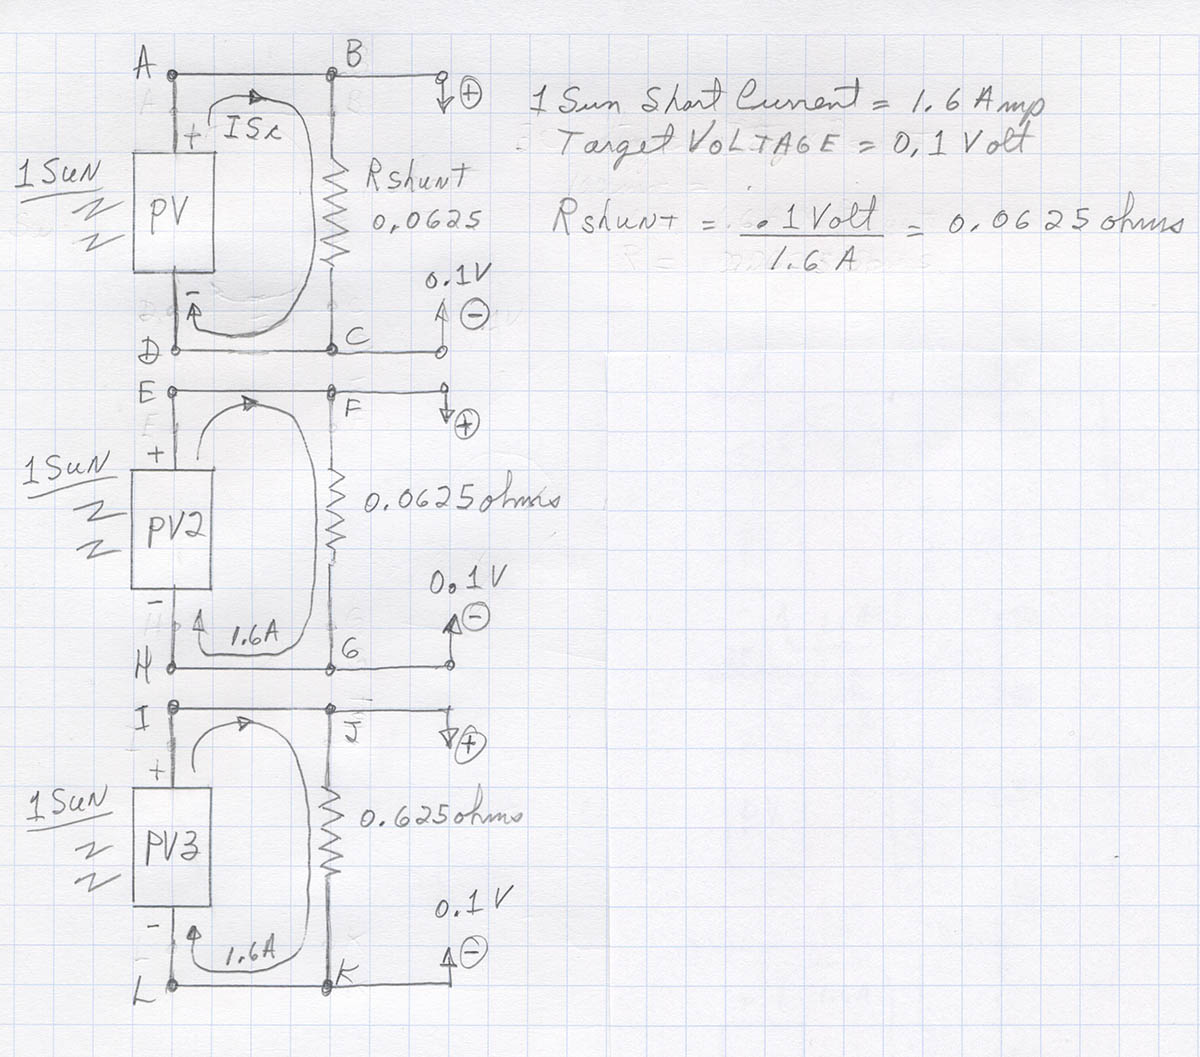 A
B
+
1 Sun Short Current = 1.6 Amp
Target VOLTAGE = 0,1 Volt
+ ISc
1 SUN
PV
Rshunt
0,0625
Rshunt = .1 Volt / 1.6 A = 0.0625 ohms
0.1V
-
-
D
C
E
F
+
+
1 SUN
PV2
0.0625 ohms
0.1V
-
-
1.6A
H
G
I
J
+
+
1 SUN
PV3
0.625 ohms
0.1V
-
-
1.6A
L
K